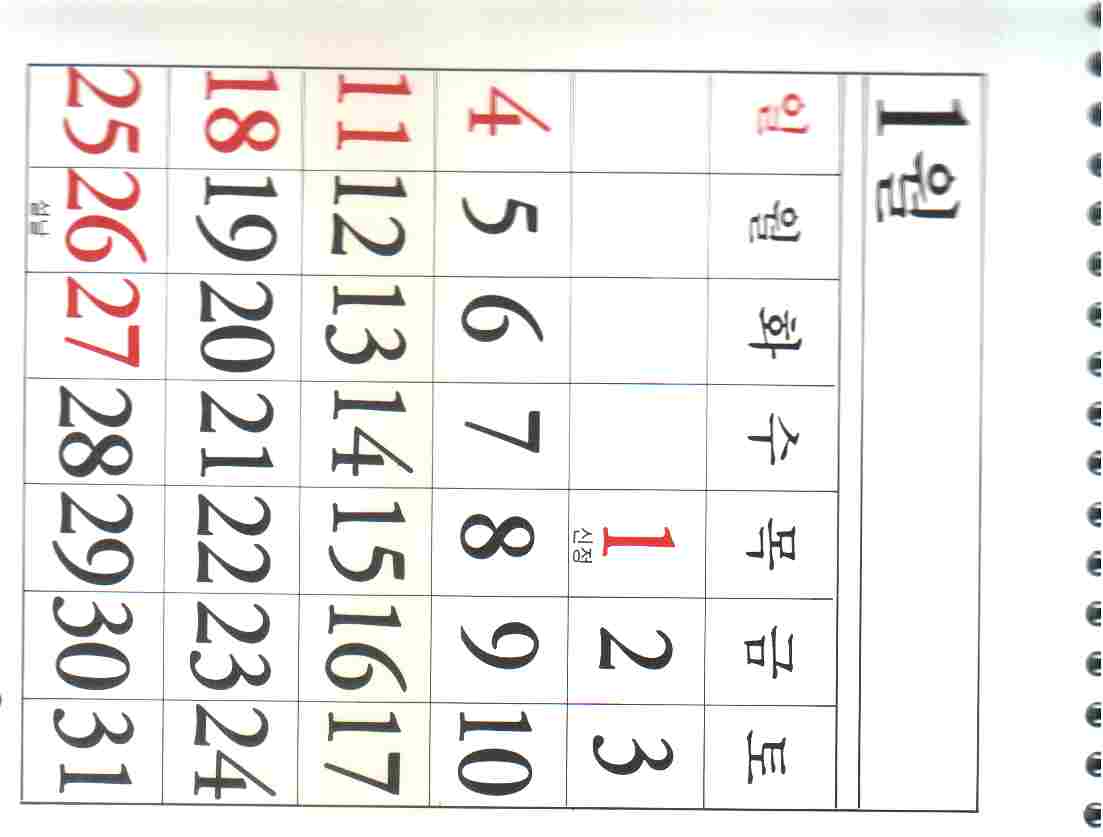 1월
일 월 화 수 목 금 토
1 2 3
신정
4 5 6 7 8 9 10
11 12 13 14 15 16 17
18 19 20 21 22 23 24
25 26 27 28 29 30 31
설날